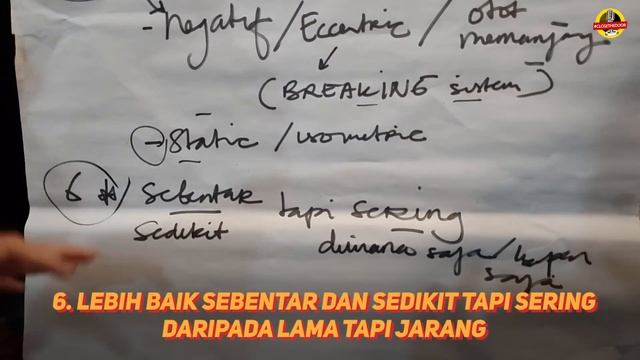 #CLOSETHEDOOR
→ negatif / Eccentric / otot memanjang
(BREAKING system)
→ Static / isometric
6 sebentar tapi sering
sedikit dimana saja / kapan saja
6. LEBIH BAIK SEBENTAR DAN SEDIKIT TAPI SERING
DARIPADA LAMA TAPI JARANG